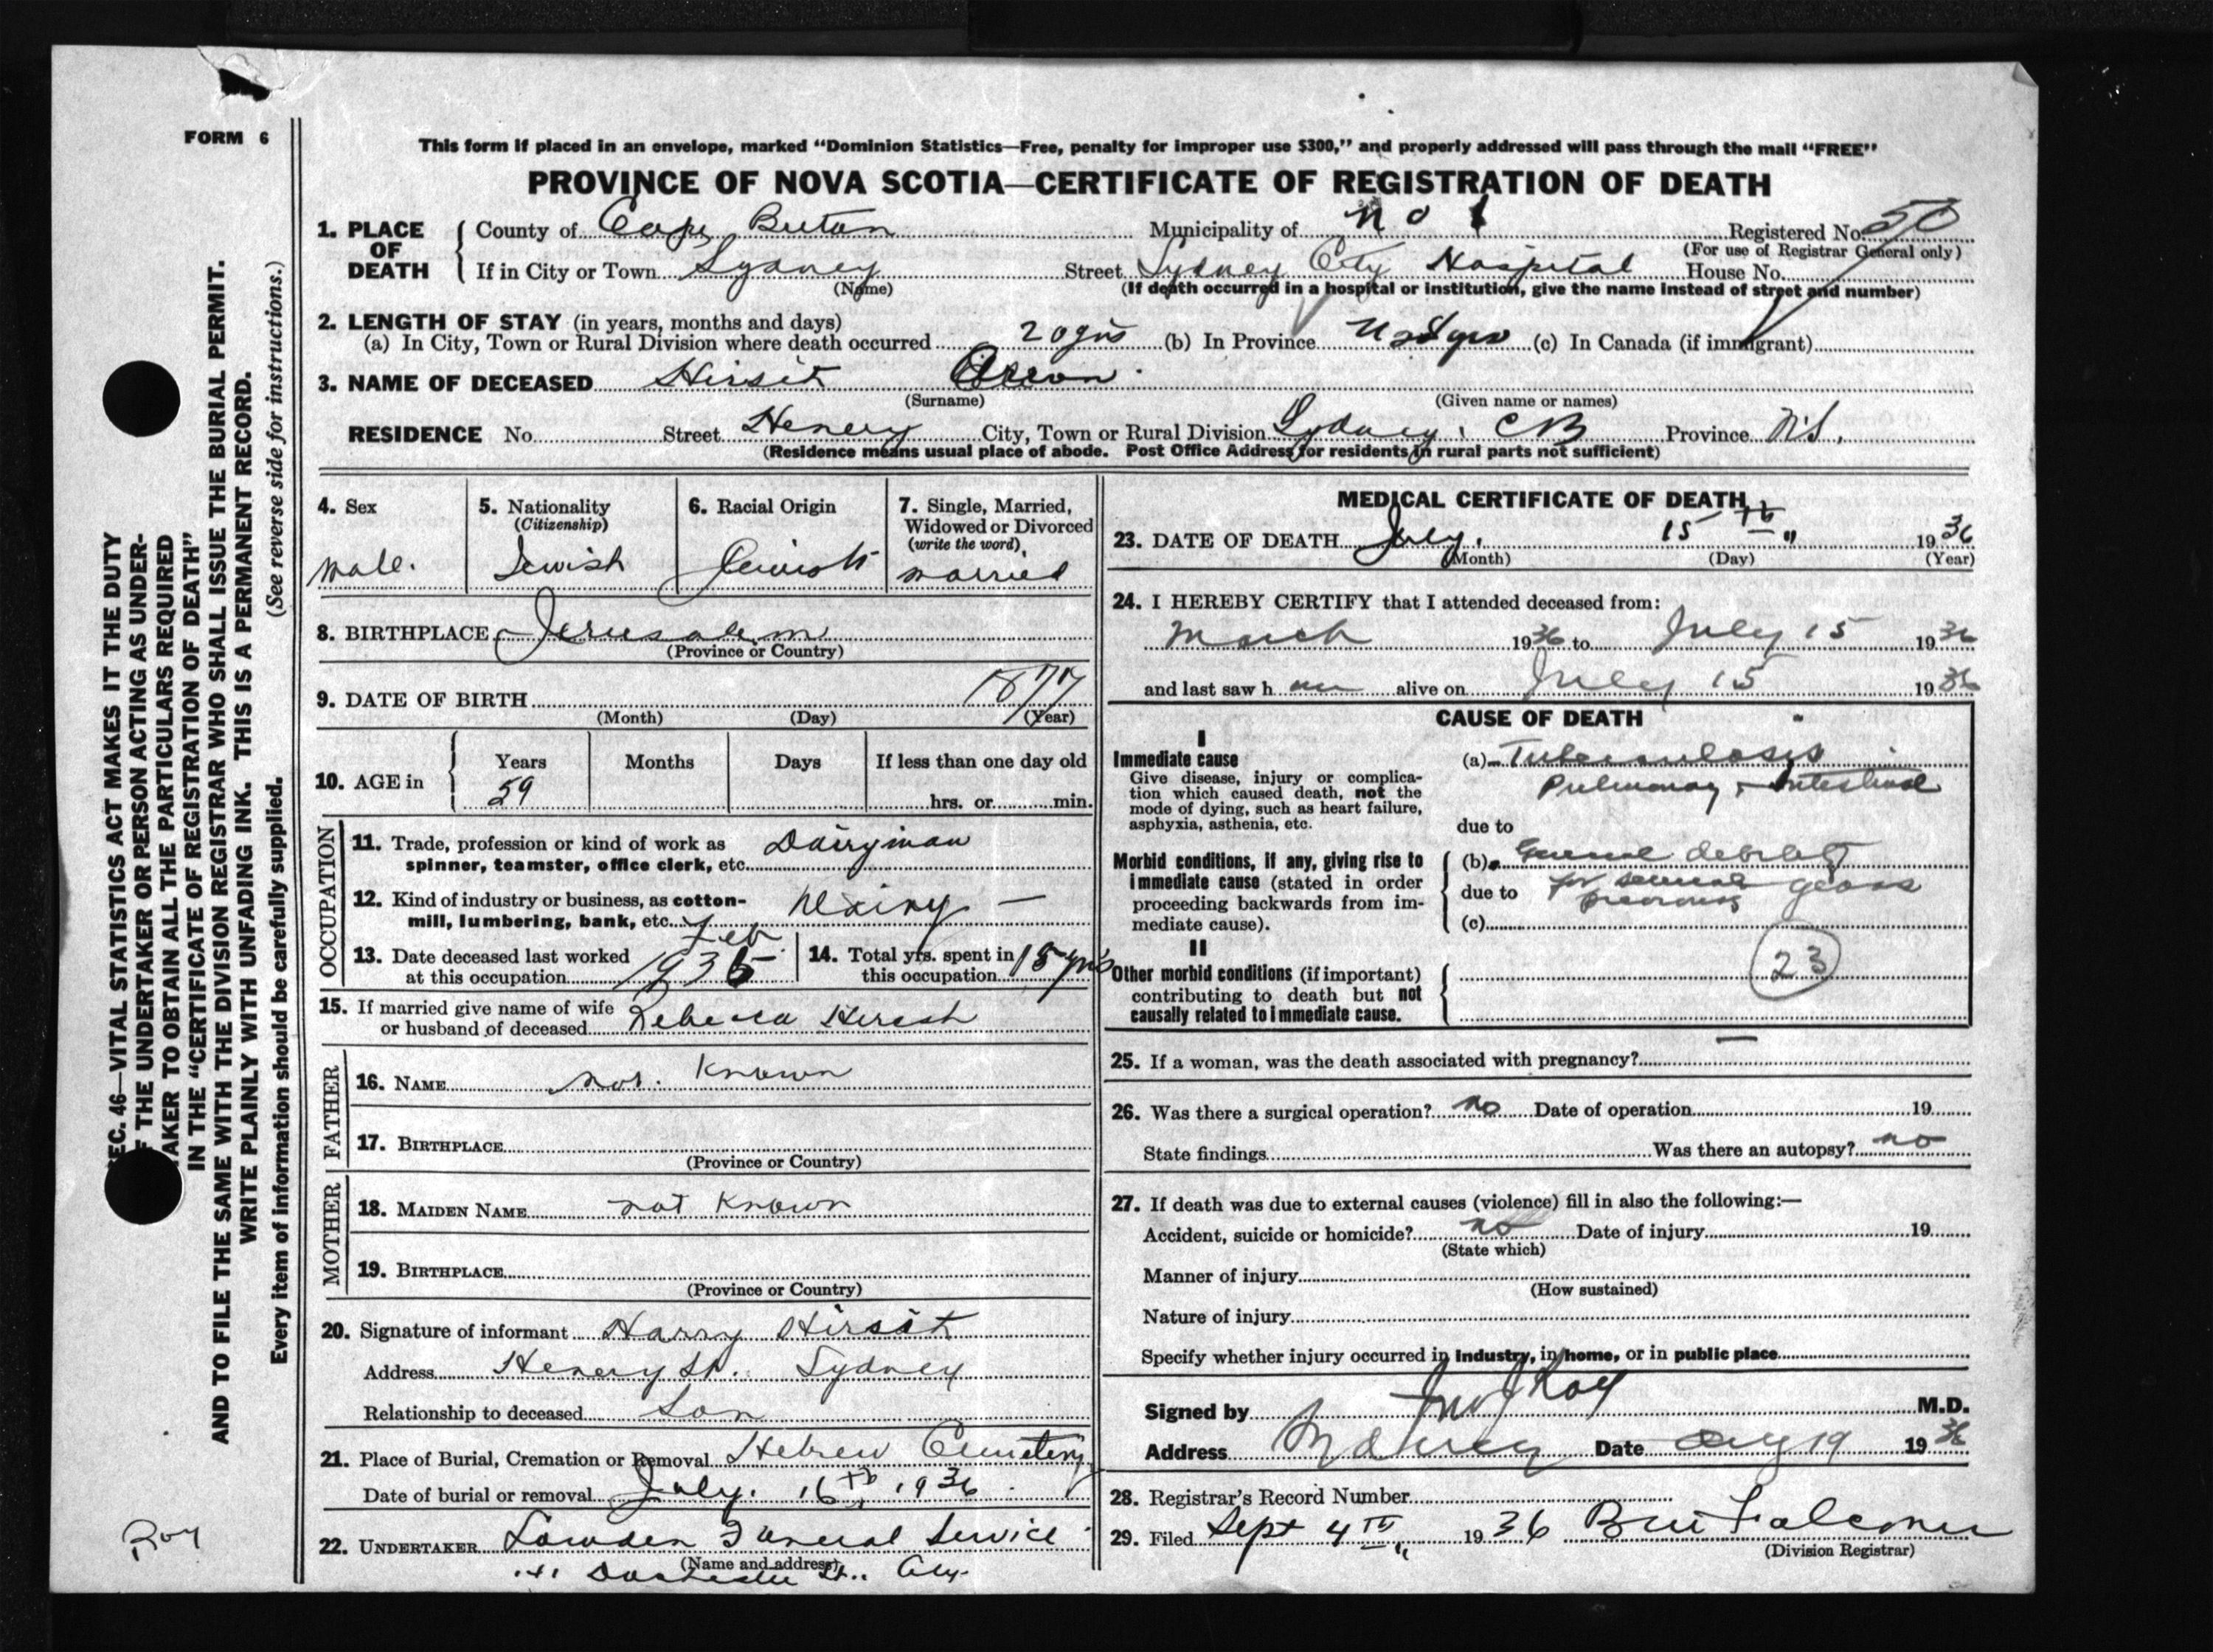 FORM 6
This form if placed in an envelope, marked "Dominion Statistics—Free, penalty for improper use $300," and properly addressed will pass through the mail "FREE"
PROVINCE OF NOVA SCOTIA—CERTIFICATE OF REGISTRATION OF DEATH
1. PLACE OF DEATH County of Cape Breton Municipality of No 1 Registered No. 50
(For use of Registrar General only)
If in City or Town Sydney Street Sydney City Hospital House No.
(Name) (If death occurred in a hospital or institution, give the name instead of street and number)
2. LENGTH OF STAY (in years, months and days)
(a) In City, Town or Rural Division where death occurred 20 yrs (b) In Province yrs (c) In Canada (if immigrant)
3. NAME OF DECEASED Hirsit
(Surname) (Given name or names)
RESIDENCE No. Street Henery City, Town or Rural Division Sydney, CB Province N.S.
(Residence means usual place of abode. Post Office Address for residents in rural parts not sufficient)
4. Sex
male.
5. Nationality
(Citizenship)
Jewish
6. Racial Origin
Jewish
7. Single, Married,
Widowed or Divorced
(write the word)
married
8. BIRTHPLACE Jerusalem
(Province or Country)
9. DATE OF BIRTH 1877
(Month) (Day) (Year)
10. AGE in Years Months Days If less than one day old
59 hrs. or min.
OCCUPATION
11. Trade, profession or kind of work as Dairyman
spinner, teamster, office clerk, etc.
12. Kind of industry or business, as cotton- Dairy —
mill, lumbering, bank, etc.
13. Date deceased last worked Feb
at this occupation 1936
14. Total yrs. spent in
this occupation 15 yrs
15. If married give name of wife
or husband of deceased Rebecca Hirsch
FATHER
16. NAME not. Known
17. BIRTHPLACE
(Province or Country)
MOTHER
18. MAIDEN NAME not Known
19. BIRTHPLACE
(Province or Country)
20. Signature of informant Harry Hirsit
Address Henery St. Sydney
Relationship to deceased Son
21. Place of Burial, Cremation or Removal Hebrew Cemetery
Date of burial or removal July. 16th, 1936
22. UNDERTAKER Lowden Funeral Service
(Name and address)
Dorchester St.. City.
MEDICAL CERTIFICATE OF DEATH
23. DATE OF DEATH July. 15th 1936
(Month) (Day) (Year)
24. I HEREBY CERTIFY that I attended deceased from:
March 1936 to July 15 1936
and last saw h im alive on July 15 1936
CAUSE OF DEATH
I
Immediate cause
Give disease, injury or complica-
tion which caused death, not the
mode of dying, such as heart failure,
asphyxia, asthenia, etc.
(a) Tuberculosis
Pulmonary + Intestinal
due to
Morbid conditions, if any, giving rise to
immediate cause (stated in order
proceeding backwards from im-
mediate cause).
(b) General debility
due to for several years
previous
(c)
II
Other morbid conditions (if important)
contributing to death but not
causally related to immediate cause.
23
25. If a woman, was the death associated with pregnancy? —
26. Was there a surgical operation? no Date of operation 19
State findings Was there an autopsy? no
27. If death was due to external causes (violence) fill in also the following:—
Accident, suicide or homicide? no Date of injury 19
(State which)
Manner of injury
(How sustained)
Nature of injury
Specify whether injury occurred in industry, in home, or in public place
Signed by M.D.
Address Sydney Date Aug 19 1936
28. Registrar's Record Number
29. Filed Sept 4th 1936 Falconer
(Division Registrar)
EC. 46—VITAL STATISTICS ACT MAKES IT THE DUTY
F THE UNDERTAKER OR PERSON ACTING AS UNDER-
AKER TO OBTAIN ALL THE PARTICULARS REQUIRED
IN THE "CERTIFICATE OF REGISTRATION OF DEATH"
AND TO FILE THE SAME WITH THE DIVISION REGISTRAR WHO SHALL ISSUE THE BURIAL PERMIT.
WRITE PLAINLY WITH UNFADING INK. THIS IS A PERMANENT RECORD.
Every item of information should be carefully supplied. (See reverse side for instructions.)
Roy